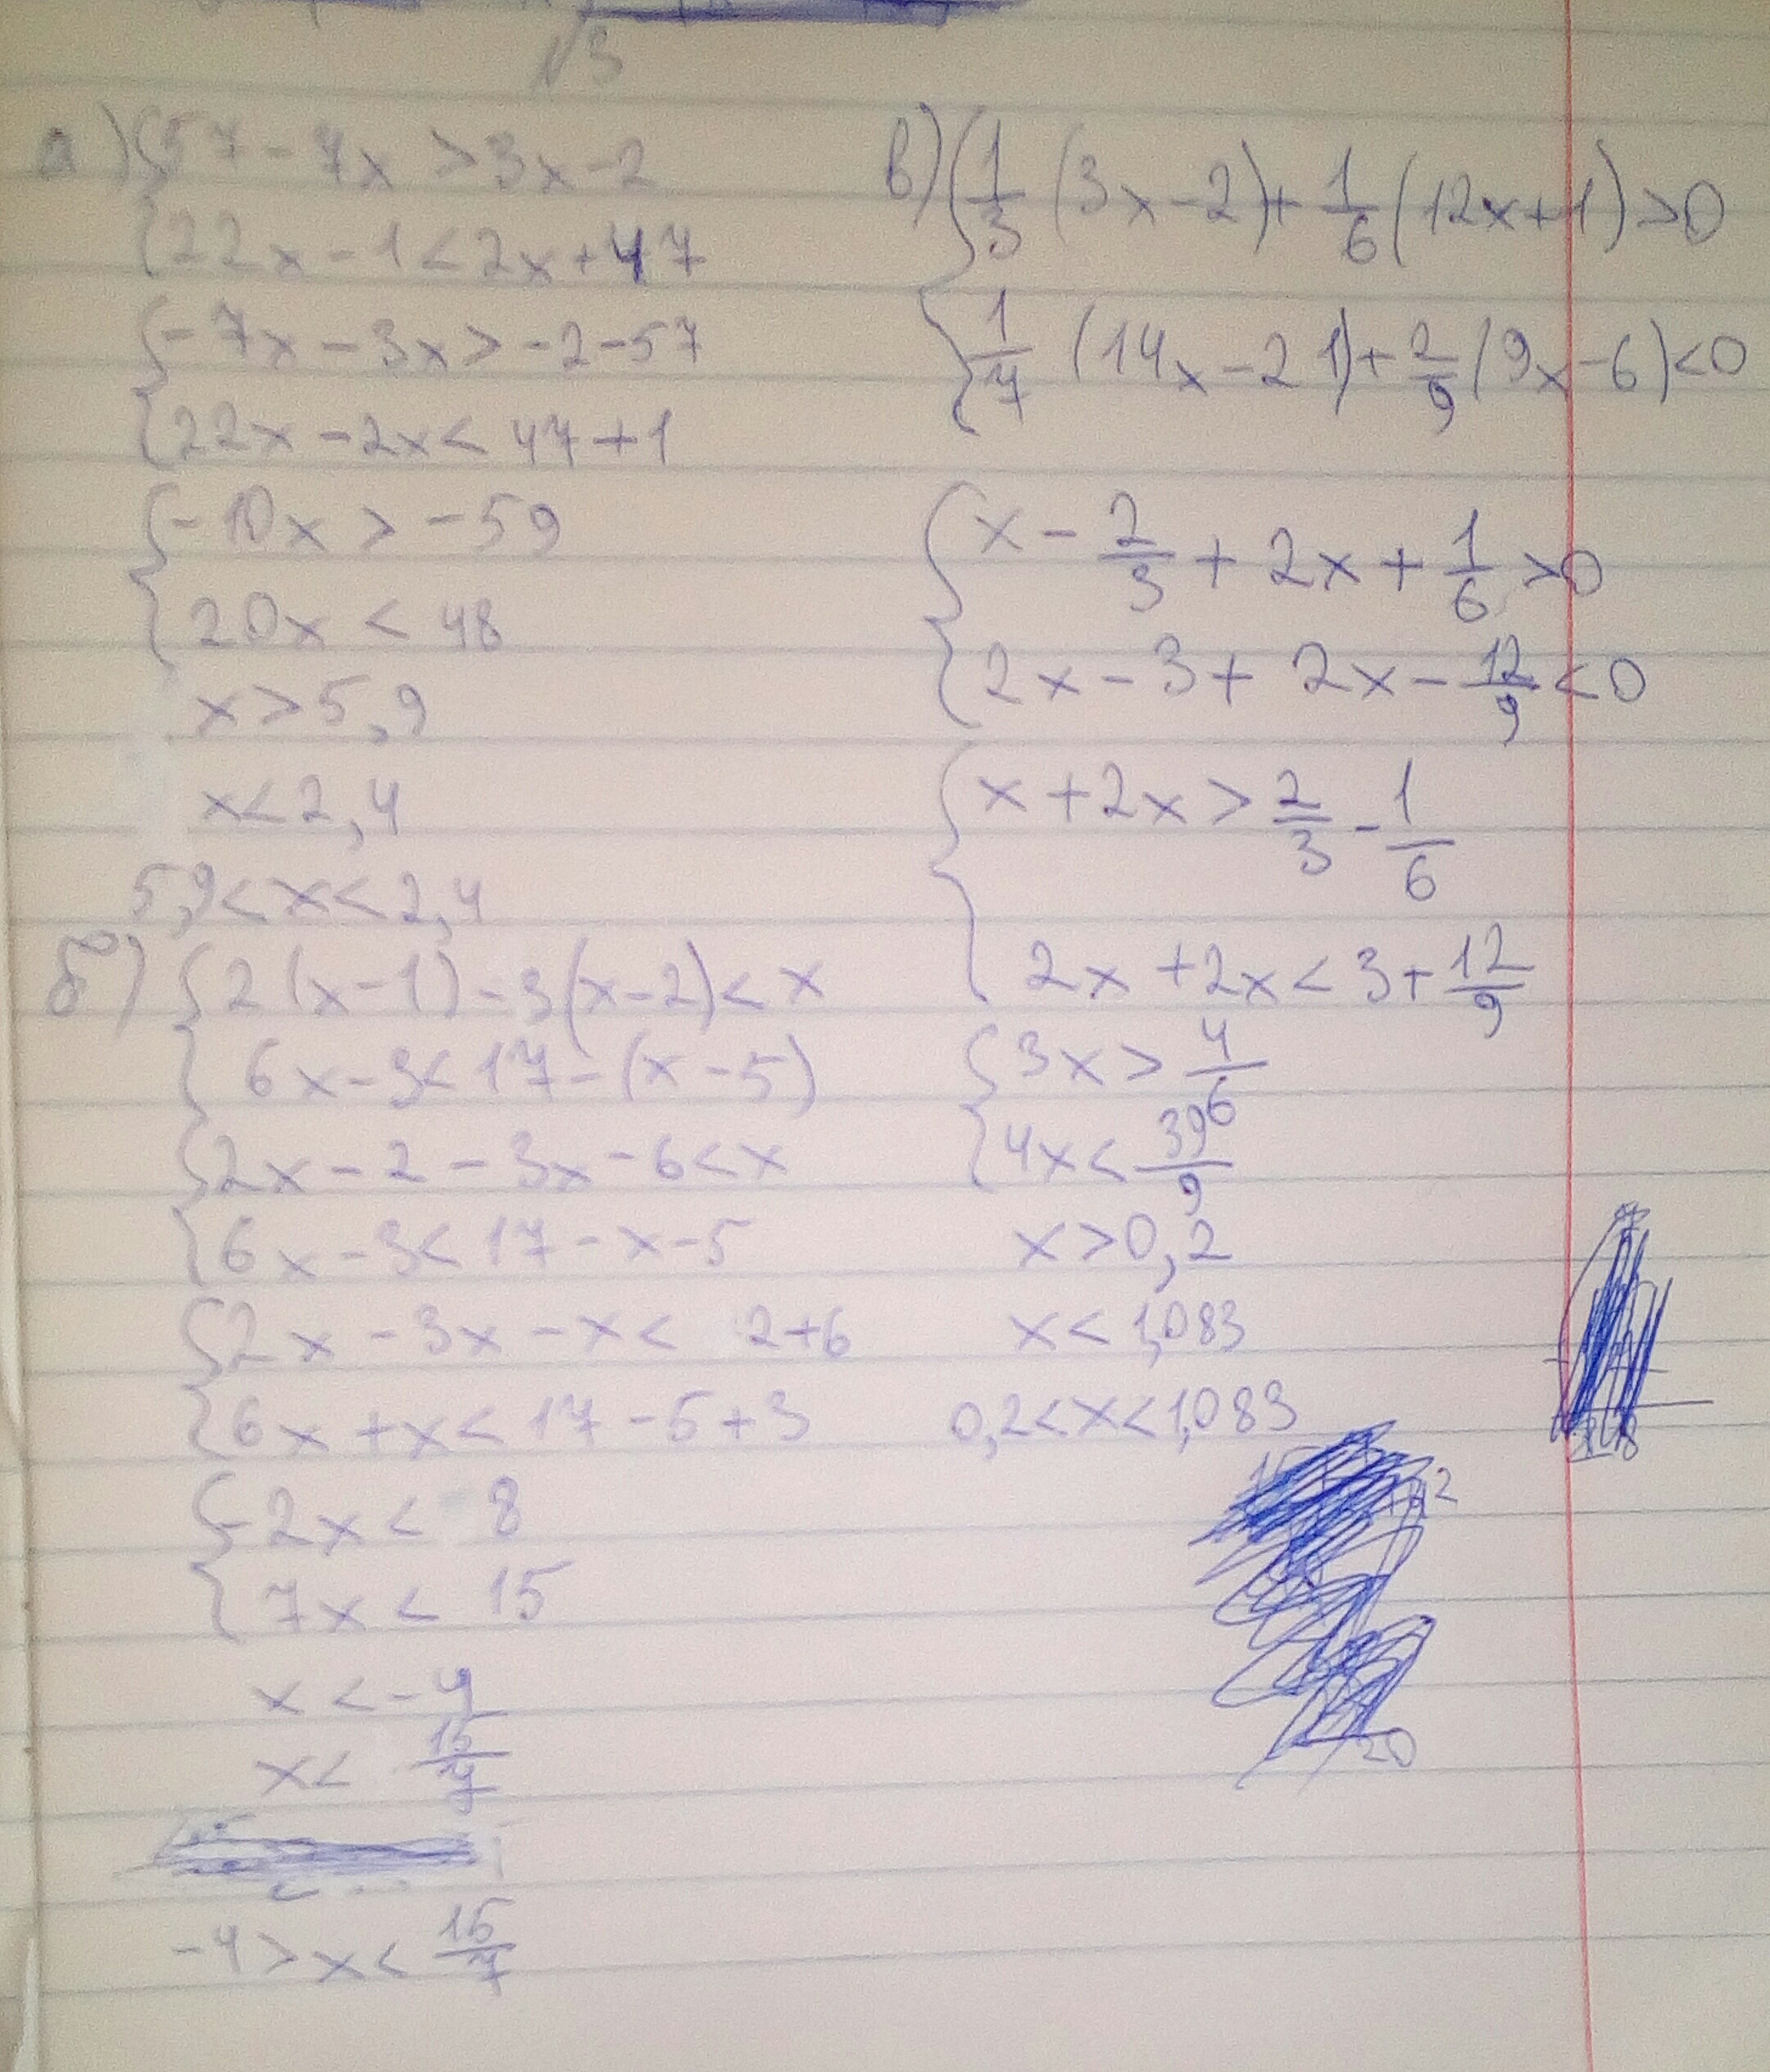 √3
а) { 57 - 7x > 3x - 2
{ 22x - 1 < 2x + 47
{ - 7x - 3x > - 2 - 57
{ 22x - 2x < 47 + 1
{ - 10x > - 59
{ 20x < 48
x > 5,9
x < 2,4
5,9 < x < 2,4
б) { 2(x - 1) - 3(x - 2) < x
{ 6x - 3 < 17 - (x - 5)
{ 2x - 2 - 3x - 6 < x
{ 6x - 3 < 17 - x - 5
{ 2x - 3x - x < 2 + 6
{ 6x + x < 17 - 5 + 3
{ - 2x < 8
{ 7x < 15
x < - 4
x < 15/7
- 4 > x < 15/7
в) { 1/3 (3x - 2) + 1/6 (12x + 1) > 0
{ 1/7 (14x - 21) + 2/9 (9x - 6) < 0
{ x - 2/3 + 2x + 1/6 > 0
{ 2x - 3 + 2x - 12/9 < 0
{ x + 2x > 2/3 - 1/6
{ 2x + 2x < 3 + 12/9
{ 3x > 4/6
{ 4x < 39/9
x > 0,2
x < 1,083
0,2 < x < 1,083